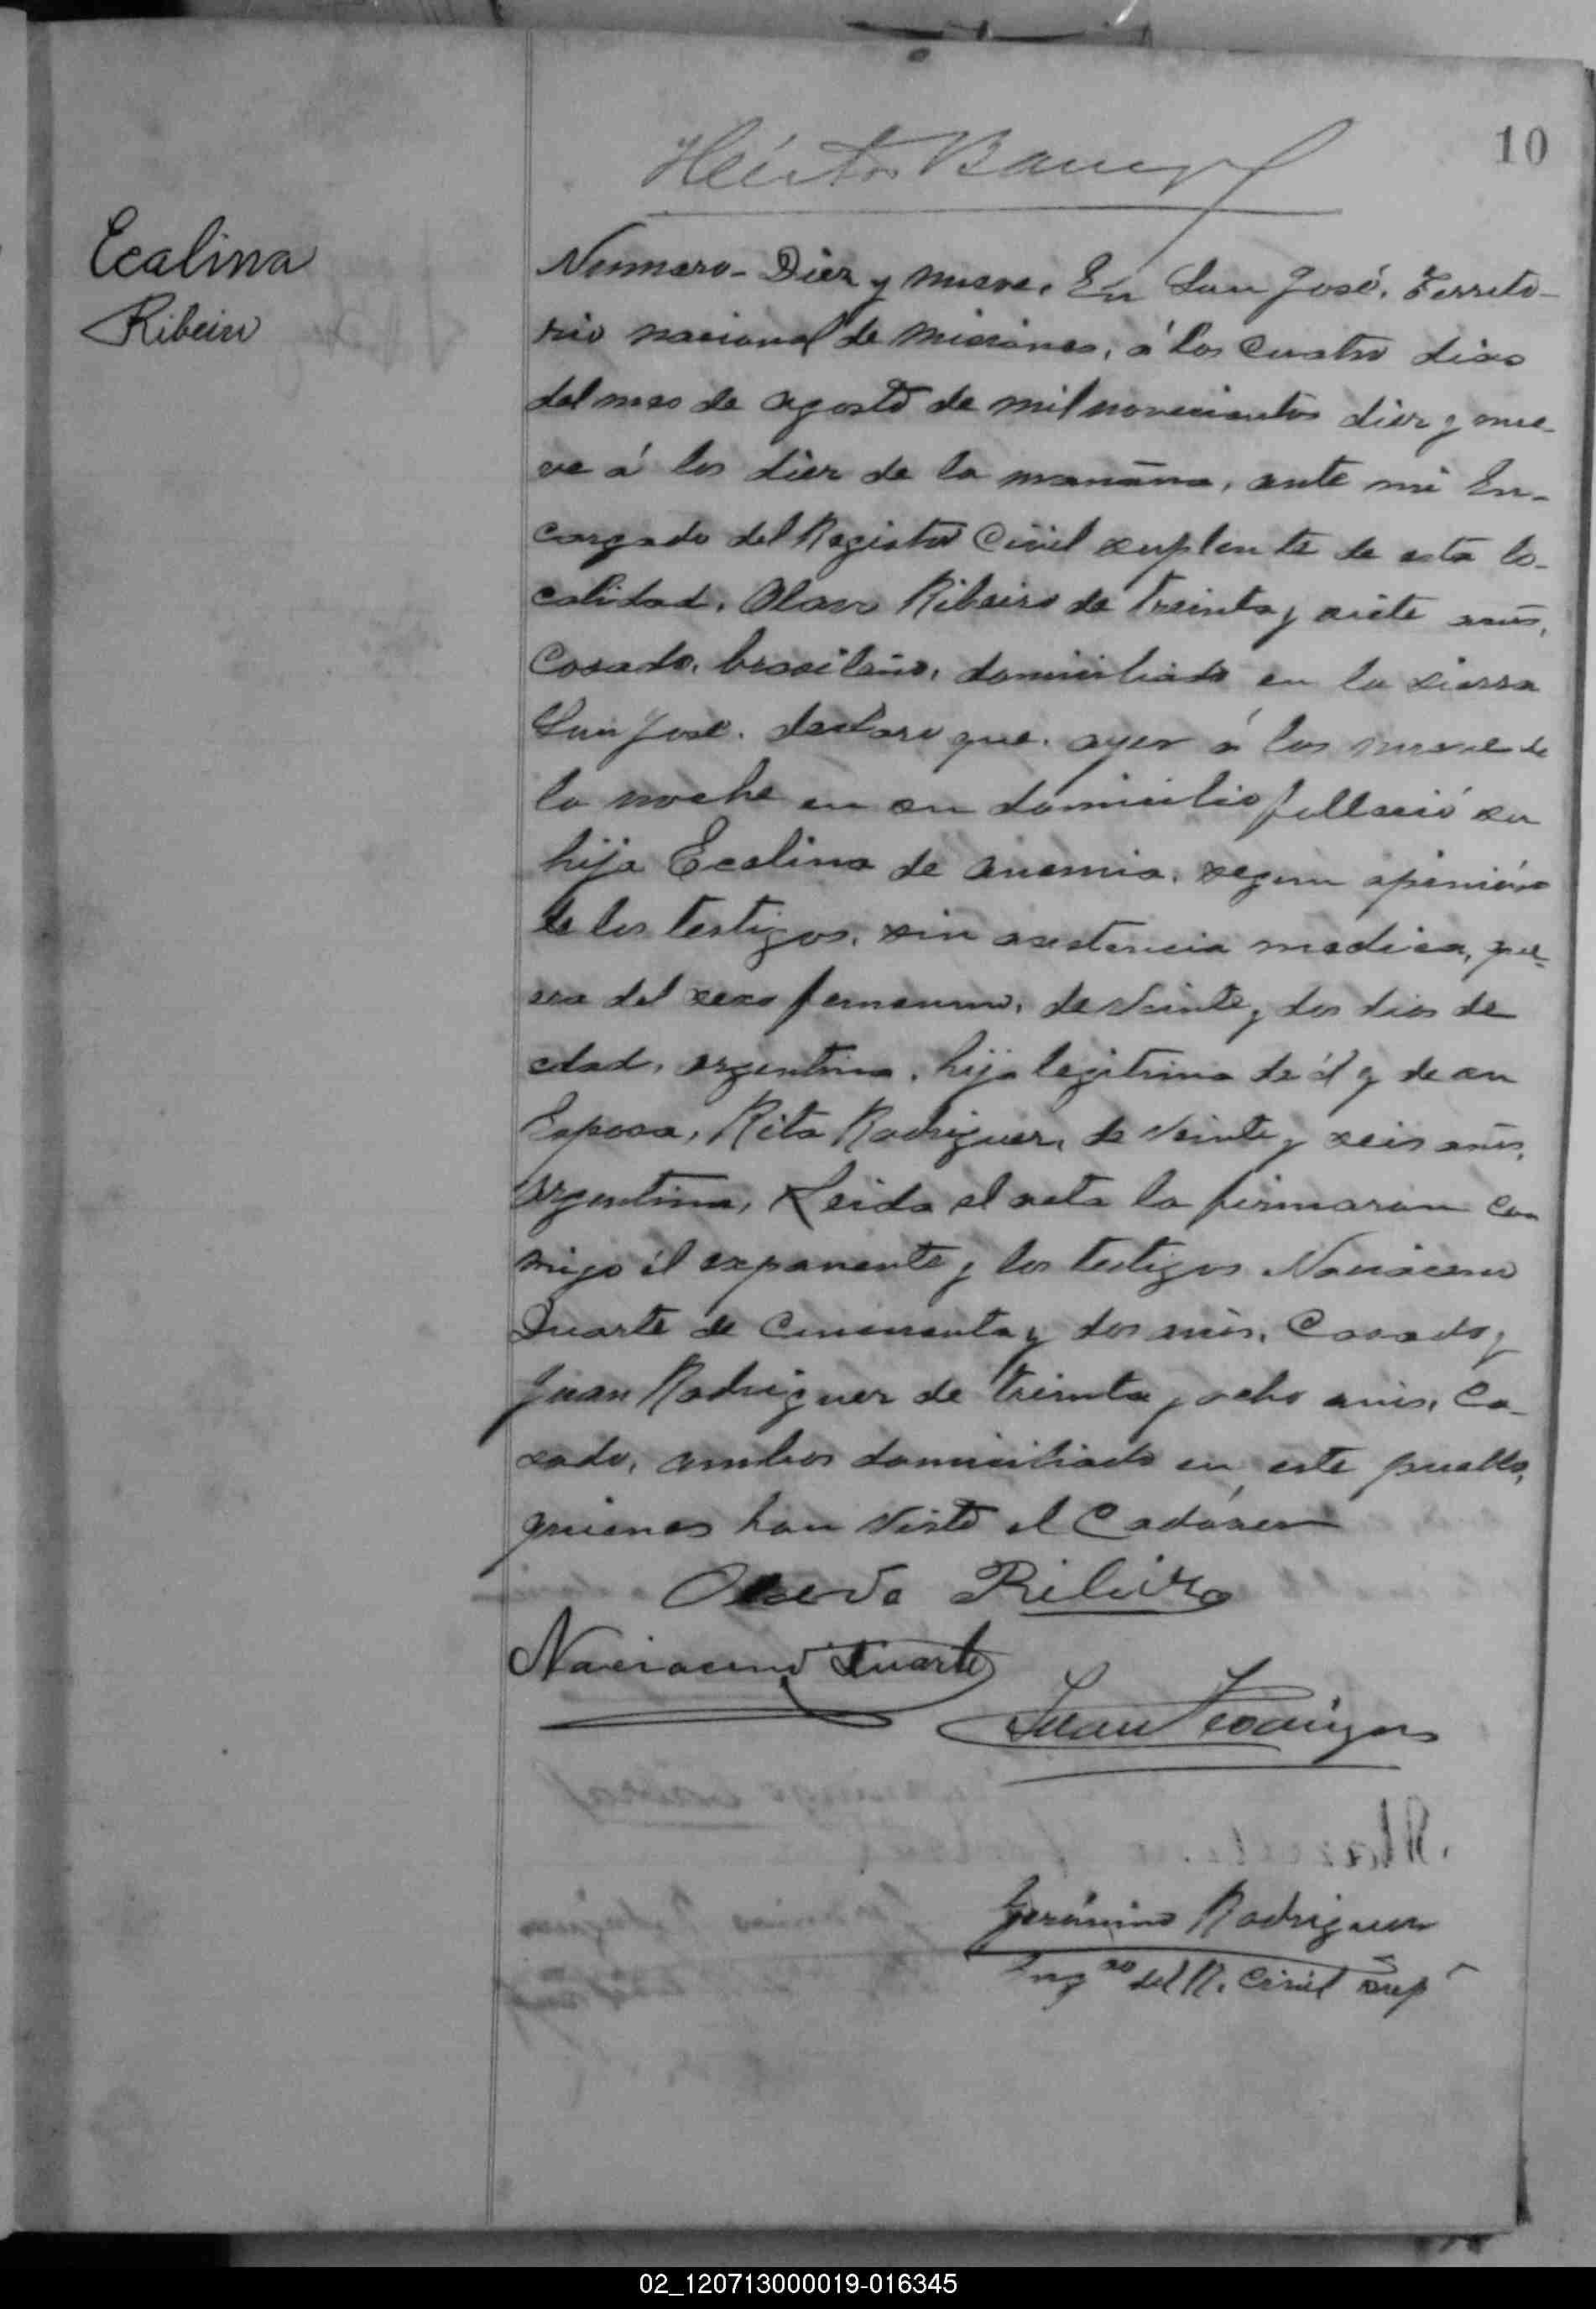 10
Héctor
Ecalina
Ribeiro
Numero- Diez y nueve. En San José, Territo-
rio nacional de Misiones, á los cuatro dias
del mes de agosto de mil novecientos diez y nue-
ve á las diez de la mañana, ante mi En-
cargado del Registro Civil suplente de esta lo-
calidad, Olavo Ribeiro de treinta y siete años,
Casado, brasileño, domiciliado en la sierra
San José. declaro que. ayer á las nueve de
la noche en su domicilio falleció su
hija Ecalina de anemia, segun opinión
de los testigos, sin asistencia medica, que
era del sexo femenino, de veinte y dos dias de
edad, argentina, hija legitima de él y de su
Esposa, Rita Rodriguez, de veinte y seis años,
argentina, Leida el acta la firmaron con
migo él exponente y los testigos Naviaceno
Duarte de cincuenta y dos años, Casado y
Juan Rodriguez de treinta y ocho años, Ca-
sado, ambos domiciliado en este pueblo,
quienes han visto el Cadáver
Ribeiro
Naviaceno Duarte
Juan
Gerónimo Rodriguez
Eng do del R. Civil Sup
02_120713000019-016345